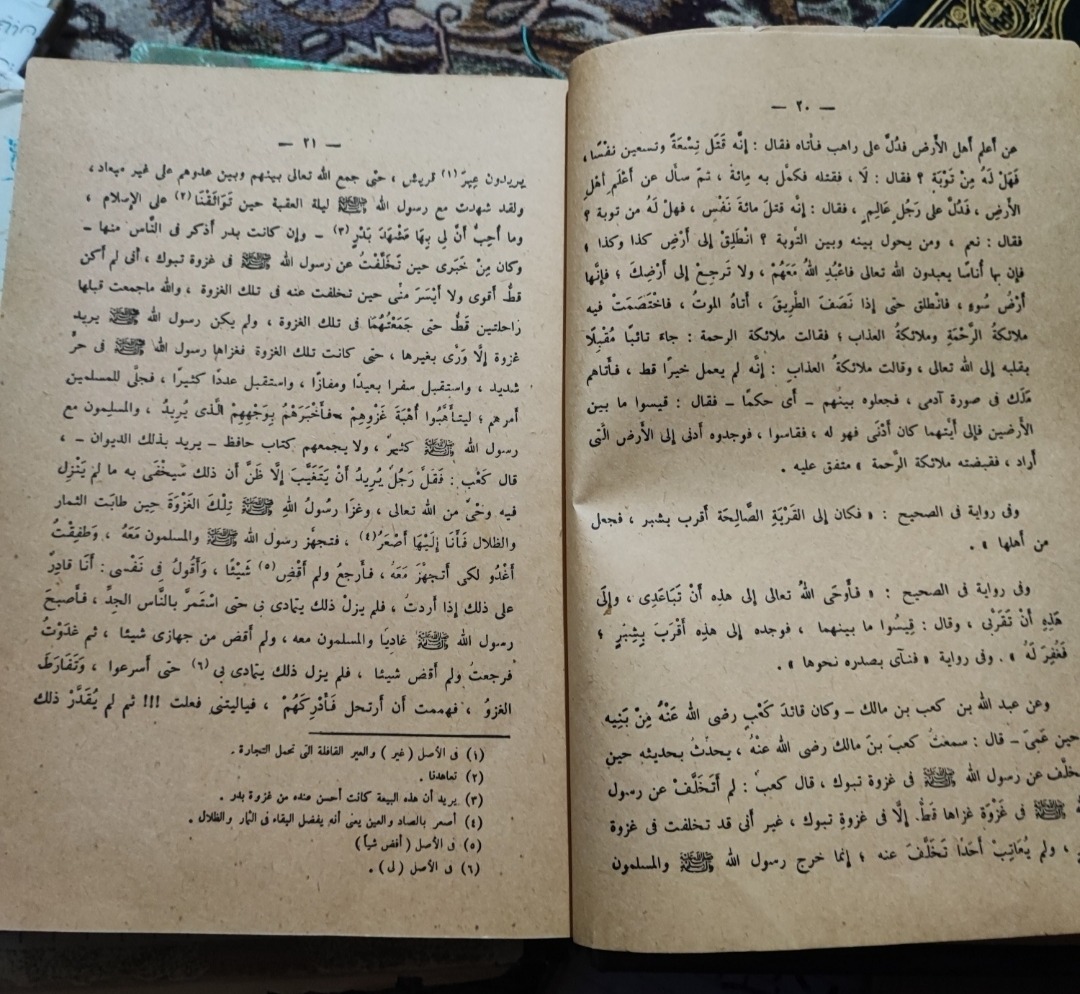 — ٢٠ —
عن أعلم أهل الأرض فدُلَّ على راهب فأتاه فقال : إنَّه قَتَل تِسْعَةً وتسعين نفْسًا ،
فَهَلْ لَهُ مِنْ تَوْبَة ؟ فقال : لَا ، فقتله فكمَّل به مِائةً ، ثمّ سأل عن أَعْلَمِ أهْلِ
الأَرض ، فَدُلَّ على رَجُلٍ عَالِمٍ ، فقال : إنَّه قتلَ مائةَ نَفْسٍ ، فهلْ لَهُ من توبة ؟
فقال : نعم ، ومن يحول بينه وبين التوبة ؟ انْطَلِقْ إلى أَرْضِ كذا وكذا ،
فإن بها أُناسًا يعبدون الله تعالى فاعْبُدِ اللهَ مَعَهُمْ ، ولا تَرجِعْ إلى أَرْضِكَ ؛ فإنَّها
أَرْضُ سُوءٍ ، فانطلق حتى إذا نَصَفَ الطَّرِيقَ ، أتاهُ الموتُ ، فاخْتَصَمَتْ فيه
ملائكةُ الرَّحْمَةِ وملائكةُ العذاب ؛ فقالت ملائكة الرحمة : جاء تائبًا مُقْبِلًا
بقلبه إلى الله تعالى ، وقالت ملائكةُ العذاب : إنَّه لم يعمل خيرًا قط ، فأتاهم
مَلَك فى صورة آدمى ، فجعلوه بينهم – أى حكمًا – فقال : قيسوا ما بين
الأرضين فإلى أيَّتهما كان أدْنَى فهو له ، فقاسوا ، فوجدوه أدنى إلى الأرض الَّتى
أراد ، فقبضته ملائكة الرَّحمة » متفق عليه .
وفى رواية فى الصحيح : « فكان إلى القَرْيَةِ الصَّالِحَة أقرب بشبر ، فجعل
من أهلها » .
وفى رواية فى الصحيح : « فأوحَى اللهُ تعالى إلى هذه أَنْ تَبَاعَدِى ، وإلى
هَذِهِ أَنْ تَقَرَّبى ، وقال : قِيسُوا ما بينهما ، فوجده إلى هذه أقْرَبَ بِشِبْرٍ ؛
فَغُفِرَ لَهُ » . وفى رواية « فنأى بصدره نحوها » .
وعن عبد الله بن كعب بن مالك – وكان قائدَ كَعْبٍ رضى الله عَنْهُ مِنْ بَنِيه
حين عَمِىَ – قال : سمعتُ كعبَ بنَ مالك رضى الله عنْهُ ، يحدّثُ بحديثه حين
تخلَّف عن رسول الله ﷺ فى غزوة تبوك ، قال كعبٌ : لم أتَخَلَّفْ عن رسول
ﷺ فى غَزْوَة غزاها قَطُّ إلَّا فى غزوةِ تبوك ، غير أنى قد تخلفت فى غزوة
، ولم يُعَاتِبْ أَحَدًا تَخَلَّفَ عنه ؛ إنما خرج رسول الله ﷺ والمسلمون
— ٢١ —
يريدون عِيرَ (١) قريش ، حتَّى جمع الله تعالى بينهم وبين عدوهم على غير ميعاد ،
ولقد شهدت مع رسول الله ﷺ ليلة العقبة حين تَوَاثَقْنَا (٢) على الإسلام ،
وما أُحِبُّ أَنَّ لى بِهَا مَشْهَدَ بَدْرٍ (٣) – وإن كانت بدر أذكر فى النَّاس منها –
وكان مِنْ خَبَرى حين تَخَلَّفْتُ عن رسول الله ﷺ فى غزوة تبوك ، أنى لم أكن
قطُّ أقوى ولا أَيْسَرَ منِّى حين تخلفت عنه فى تلك الغزوة ، والله ماجمعت قبلها
راحلتين قَطُّ حتى جَمَعْتُهُمَا فى تلك الغزوة ، ولم يكن رسول الله ﷺ يريد
غزوة إلَّا وَرَّى بغيرها ، حتى كانت تلك الغزوة فغزاها رسول الله ﷺ فى حرٍّ
شديد ، واستقبل سفرا بعيدًا ومفازًا ، واستقبل عددًا كثيرًا ، فجلَّى للمسلمين
أمرهم ؛ ليتأَهَّبُوا أُهْبَةَ غَزْوِهِمْ فَأَخْبَرَهُمْ بِوَجْهِهِمْ الَّذى يُرِيدُ ، والمسليمون مع
رسول الله ﷺ كثيرٌ ، ولا يجمعهم كتاب حافظ – يريد بذلك الديوان – ،
قال كَعْبٌ : فَقَلَّ رَجُلٌ يُرِيدُ أَنْ يَتَغَيَّبَ إلَّا ظَنَّ أن ذلك سَيَخْفَى به ما لم يَنْزِل
فيه وحْىٌ من الله تعالى ، وغَزَا رسُولُ اللهِ ﷺ تِلْكَ الغَزْوَةَ حِين طابَت الثمار
والظلال فَأَنَا إلَيْهَا أَصْعَرُ (٤) ، فتجهَّز رسول الله ﷺ والمسلمون مَعَهُ ، وَطَفِقْتُ
أَغْدُو لكى أتجهَّزَ مَعَهُ ، فأرجعُ ولم أقْضِ (٥) شَيْئًا ، وَأقُولُ فى نَفْسى : أنَا قادِرٌ
على ذلك إذا أردتُ ، فلم يزلْ ذلك يتمادى بى حتى اسْتَمَرَّ بالنَّاس الجِدُّ ، فأصبحَ
رسول الله ﷺ غاديًا والمسلمون معه ، ولم أقض من جهازى شيئا ، ثم غَدَوْتُ
فرجعتُ ولم أقض شيئا ، فلم يزل ذلك يتمادى بى (٦) حتى أسرعوا ، وَتَفَارَطَ
الغزوُ ، فهممت أن أرتحل فَأُدْرِكَهُمْ ، فياليتنى فعلت !!! ثم لم يُقَدَّرْ ذلك
(١) فى الأصل ( غير ) والعير القافلة التى تحمل التجارة .
(٢) تعاهدنا .
(٣) يريد أن هذه البيعة كانت أحسن عنده من غزوة بدر .
(٤) أصعر بالصاد والعين يعنى أنه يفضل البقاء فى الثمار والظلال .
(٥) فى الأصل ( أقض شيأ )
(٦) فى الأصل ( لى ) .